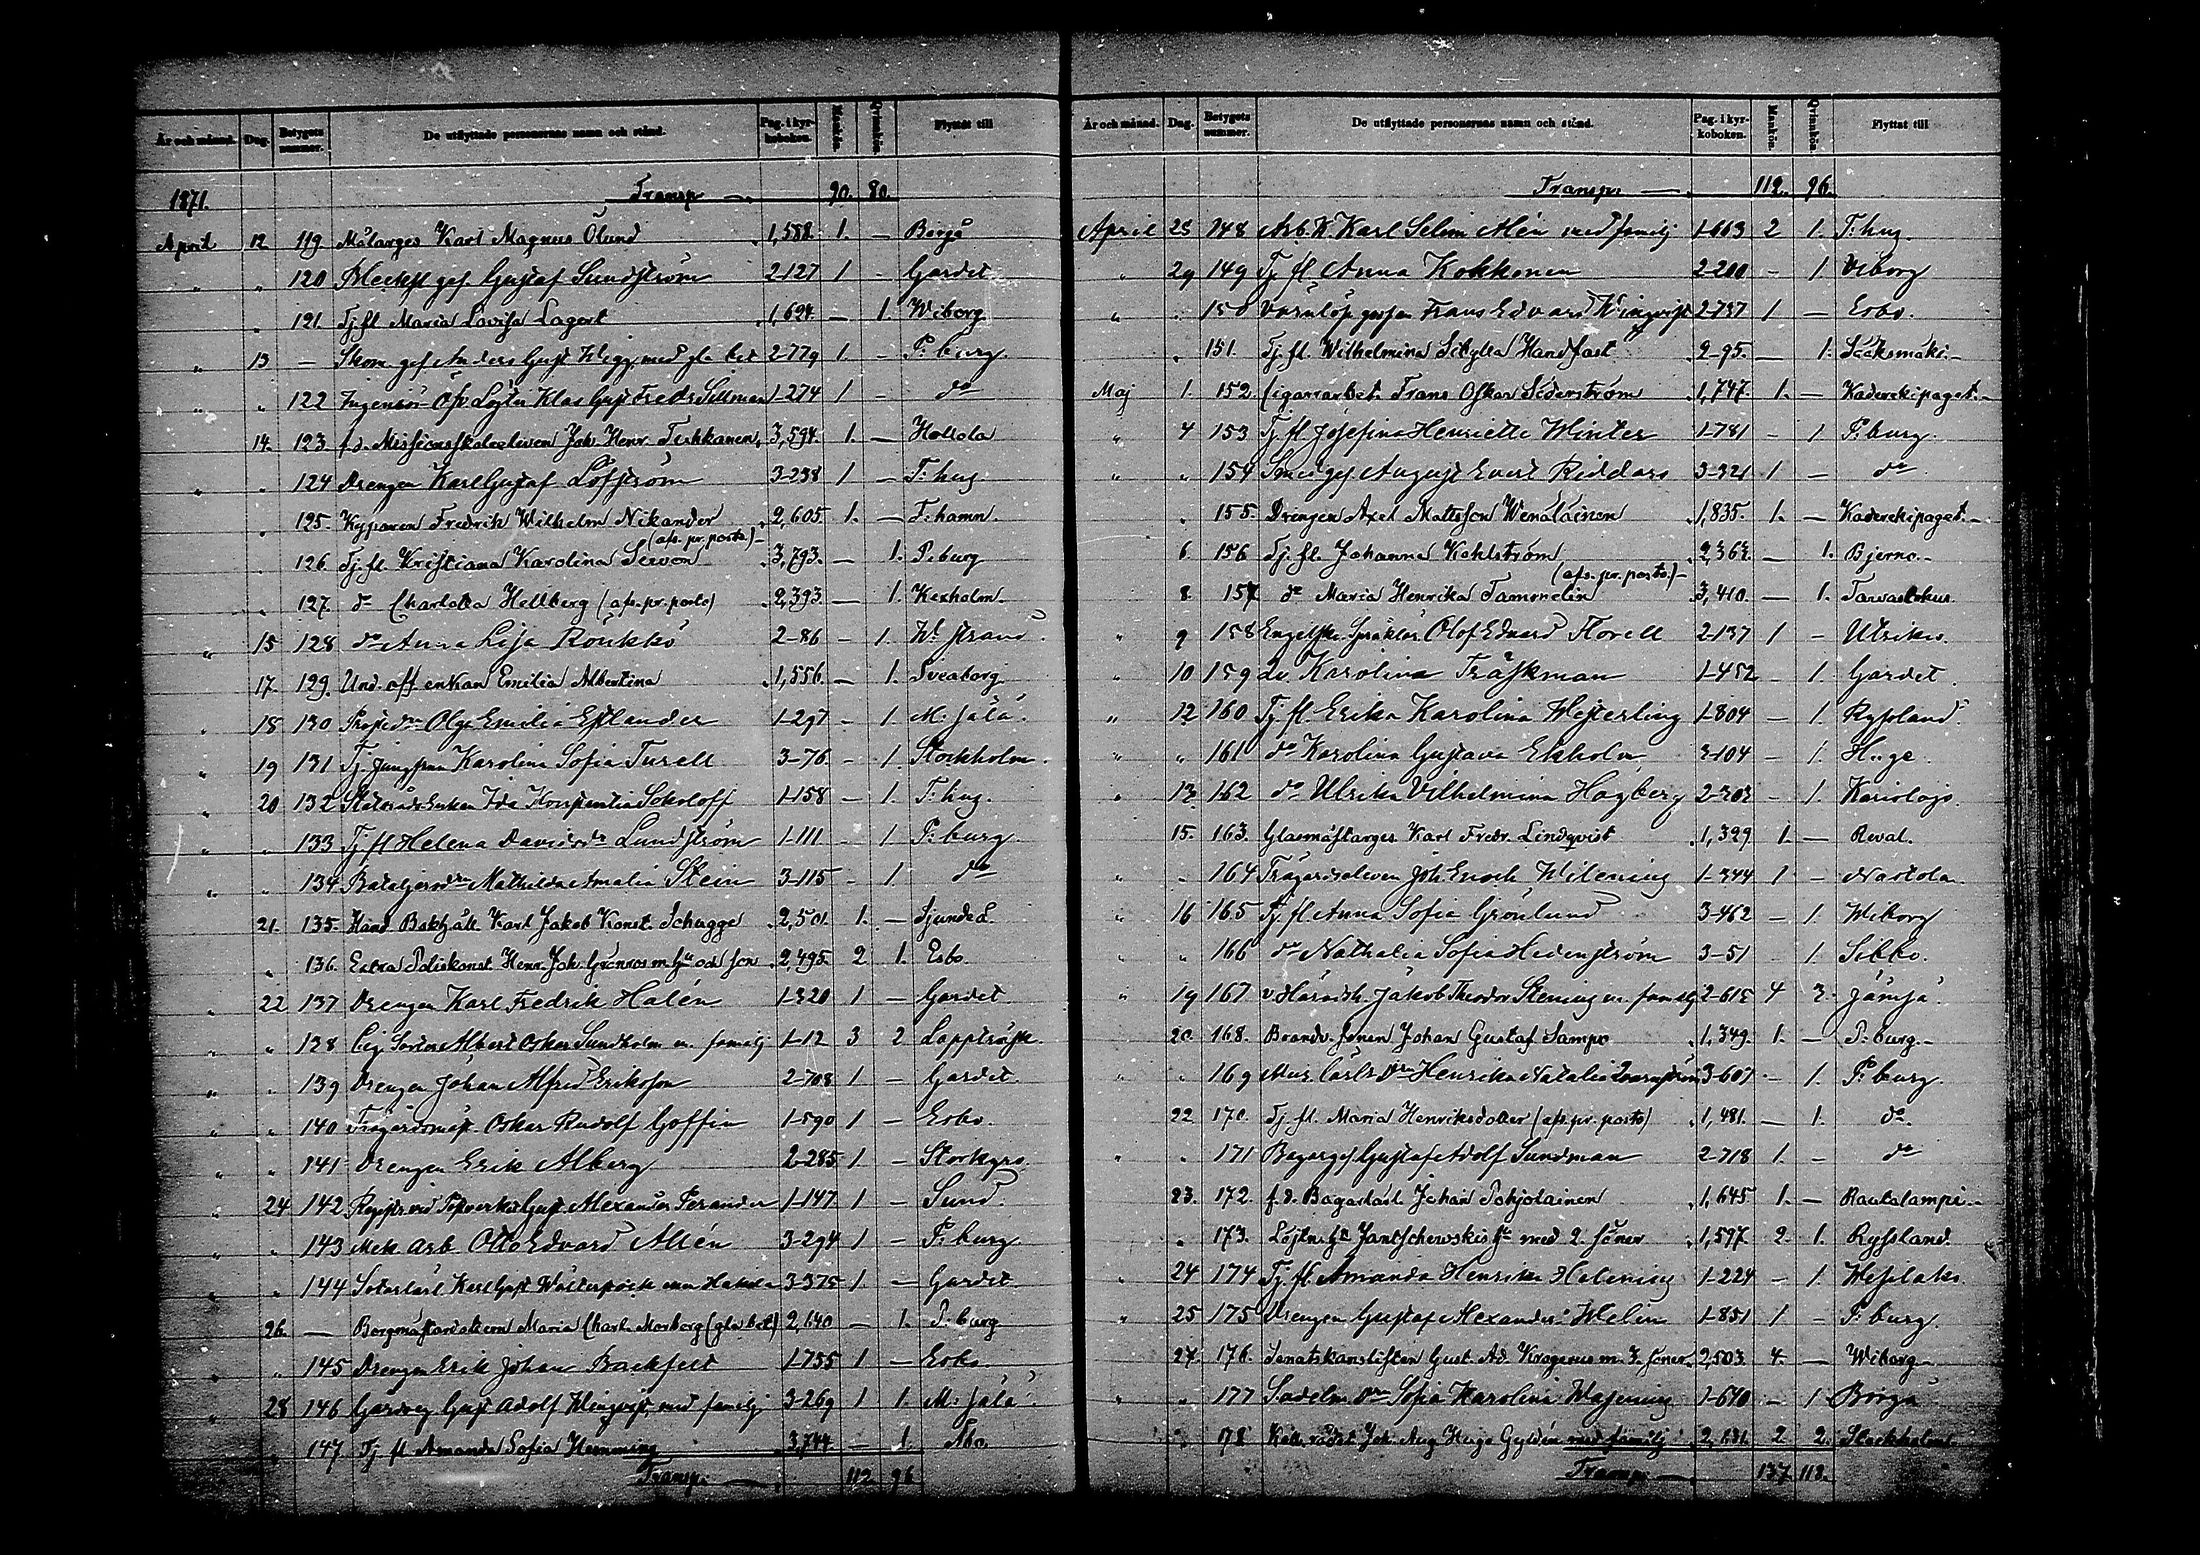 År och månad. Dag. Betygets nummer. De utflyttade personernas namn och stånd. Pag. i kyrkoboken. Mankön. Qvinnkön. Flyttat till
1871. Transp. 90. 80.
April 12 119 Målarges Karl Magnus Ölund 1,588. 1. — Borgå
" " 120 Blecksl ges. Gustaf Sundström 2-127 1 - Gardet
" 121. Tj. fl Maria Lovisa Lagert 1,624. — 1. Wiborg
" 13 — Skom. ges Anders Gust Wegg med gla bet 2-779 1. - P:burg.
" " 122 Ingeniör Löjtn Klas Gust Fredr Sillman 1-274 1 - do
" 14. 123. f.d. Missionsskoleeleven Joh. Henr. Tishkanen 3,594. 1. — Hollola
" " 124 Drengen Karl Gustaf Löfström 3-238 1 — T:hus.
" 125. Kyparen Fredrik Wilhelm Nikander 2,605. 1. — F:hamn.
" 126. Tj. fl. Kristiana Karolina Sevon (afs. pr. posto) 3,793. — 1. P:burg
" 127. do Charlotta Hellberg (afs. pr. posto) 2,393. — 1. Kexholm.
" 15 128 do Anna Lisa Rönkkö 2-86 - 1. W:strand.
17. 129. Und. off. enkan Emilia Albertina 1,556. — 1. Sveaborg
" 18 130 Olga Emilia Estlander 1-297 - 1 M:fälä.
" 19 131 Tj. Jungfrun Karolina Sofia Turell 3-76 - 1 Stockholm.
" 20 132 Statsråds Enkan Ida Konstantia Sokoloff 1-158 — 1. T:hus.
" " 133 Tj fl Helena Davidsdr Lundström 1-111 - 1 P:burg.
" " 134 Mathilda Amalia Stein 3-115 - 1. do
" 21. 135. Hand. Bokhåll Karl Jakob Konst. Schugge 2,501. 1. — Sjundeå.
" 136. Extra Poliskonst. Henr. Joh. Grönroos m. hu och son 2,495. 2 1. Esbo.
" 22 137 Drengen Karl Fredrik Halén 1-320 1 — Gardet
" " 138 Cig. Sorter Albert Oskar Sundholm m. familj 1-12 3 2 Lappträsk.
" " 139 Drengen Johan Alfred Eriksson 2-708 1 — Gardet.
" " 140 Trägårdsmäst Oskar Rudolf Goffin 1-590 1 — Esbo.
" " 141 Drengen Erik Alberg 2-285 1 — Storkyro.
" 24 142 Gust Alexander Perander 1-147 1 — Sund.
" " 143 Mek Arb. Otto Edvard Allén 3-294 1 - P:burg
" " 144 3-375 1 — Gardet.
26. — Borgmästardottern Maria Charl. Morberg (gla bet) 2,640 — 1. P:burg
" " 145 Drengen Erik Johan Backfelt 1-755 1 — Esbo.
" 28 146 Gust Adolf Wingqvist med familj 3-269 1 1. M:fälä.
" 147. Tj fl Amanda Sofia Hemming 3,744 — 1. Åbo.
Transp. 112 96
År och månad. Dag. Betygets nummer. De utflyttade personernas namn och stånd. Pag. i kyrkoboken. Mankön. Qvinnkön. Flyttat till
Transp. 112. 96.
April 25 148 Arb. K. Karl Selim Alén med familj 1-663 2 1. T:hus.
" 29 149 Tj fl Anna Kokkonen 2-200 - 1 Viborg
" " 150 Frans Edvard Wingqvist 2-737 1 — Esbo.
" 151. Tj. fl. Wilhelmina Sibylla Handfast 2-95. — 1. Sääksmäki.
Maj 1. 152. Cigarrarbet. Frans Oskar Söderström 1,747. 1. — Kaderskipaget.
" 4 153 Tj. fl Josefina Henriette Winter 1-781 - 1 P:burg.
" " 154 Smedges August Evert Riddars 3-321 1 — do
" 155. Drengen Axel Mattsson Wenäläinen 1,835. 1. — Kaderskipaget.
6. 156 Tj. fl. Johanna Kahlström 2,363. — 1. Bjerno.
8. 157 do Maria Henrika Tammelin (afs. pr. posto.) 3,410. — 1. Tavastehus.
" 9 158 Engelska Språklär. Olof Edvard Florell 2-137 1 - Ulriks.
" 10 159 Karolina Träskman 1-452 - 1. Gardet.
" 12 160 Tj. fl. Erika Karolina Westerling 1-804 — 1. Ryssland.
" " 161 do Karolina Gustava Ekholm 3-104 — 1.
" 13. 162 do Ulrika Vilhelmina Hagberg 2-303 - 1. Karislojo.
15. 163. Glasmästarges Karl Fredr. Lindqvist 1,399. 1. — Reval.
" " 164 Trägårdseleven Joh. Enoch Wilening 1-344 1 - Nastola.
" 16 165 Tj. fl Anna Sofia Grönlund 3-462 — 1. Wiborg
" 166 do Nathalia Sofia Hedenström 3-51 1 Sibbo.
" 19 167 v. Häradsh. Jakob Theodor Stening m. familj 2-615 4 3. Jämsä.
" 20. 168. Johan Gustaf Sampo 1,349. 1. — P:burg.
" " 169 Henrika Natalia 3-607 - 1. P:burg.
22 170. Tj. fl. Maria Henriksdotter (afs. pr. posto) 1,481. — 1. do.
" " 171 Bagarges Gustaf Adolf Sundman 2-718 1. - do
23. 172. f.d. Bagarlärl. Johan Pohjolainen 1,645 1. — Rautalampi.
" 173. Löjtn. hu Jantschewskis hu med 2. söner 1,597. 2. 1. Ryssland.
" 24 174 Tj. fl. Amanda Henrika Helening 1-224 - 1 Wesilaks.
" 25 175 Drengen Gustaf Alexander Welin 1-851 1 - P:burg.
27. 176. Senatskanslisten Gust. Ad. Krogerus m. 3. söner 2,503. 4. — Wiborg
" " 177 Sadelm. dtr Sofia Karolina Wasening 1-670 - 1 Borgå
" 178 Koll. rådet Joh. Aug. Hugo Gyldén med familj 2,631. 2 2. Stockholm.
Transp. 137 118.